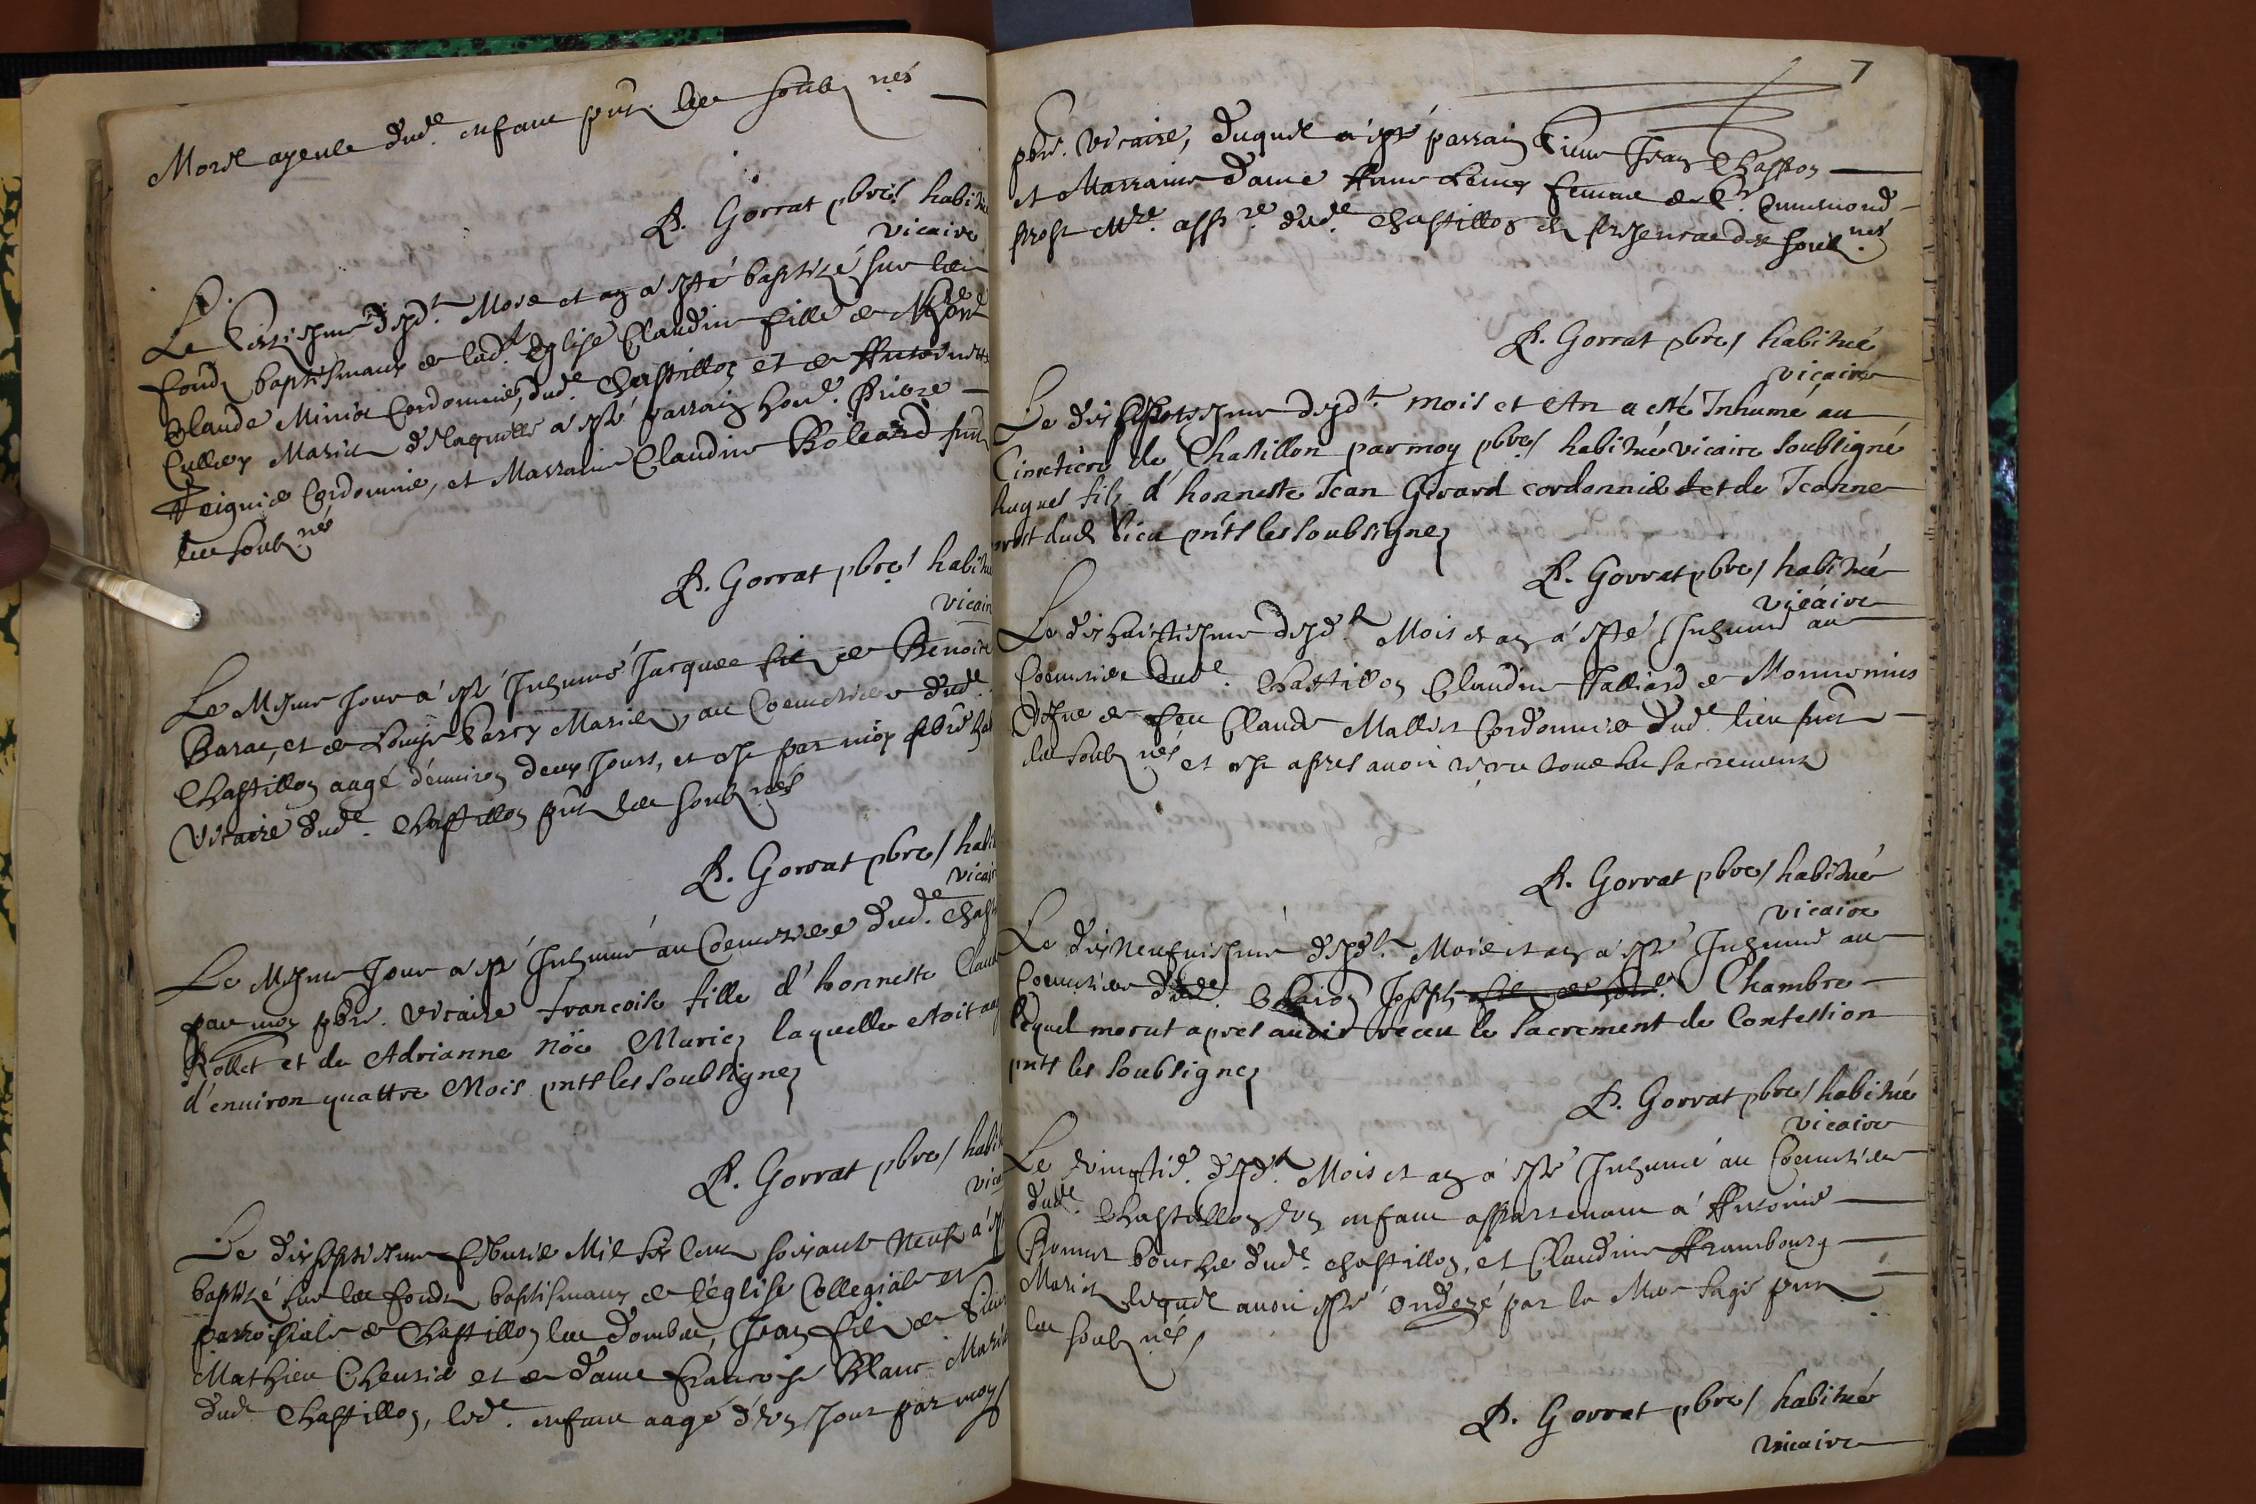 Morel ayeule dud.e enfant pnts les soub nés
B. Gorrat pbre habitué
vicaire
Le sesd.t Mois et an a esté baptizé sur les
fonds baptismaux de lad.t Eglise Claudine fille de
Claude Miniot Cordonnier, dud.e Chastillon et de
Mariez de laquelle a esté parrain hon.e
Cordonnier, et Marraine Claudine pnts
les soub nés
B. Gorrat pbre habitué
vicaire
Le Mesme Jour a esté Inhumé Jacques filz de Benoict
Barac, et de Louyse Mariez, au Coemetiere dud.e
Chastillon aagé d'enuiron deux Jours, et ce par moy pbre
vicaire dud.e Chastillon pnts les soub nés
B. Gorrat pbre habit
vicaire
Le Mesme Jour a esté Inhumé au Coemetiere dud.e Chast
par moy pbre. vicaire francoise fille d'honneste Claude
Rollet et de Adrianne Nöe Mariez laquelle estoit aag
d'enuiron quattre Mois pnts les soubsignez
B. Gorrat pbre habit
vica
Le dixseptiesme feburier Mil six cens soixante Neuf a esté
baptizé sur les fonds baptismaux de l'église Collegiale et
parroissiale de Chastillon les Dombes, Jean filz de Sieur
Mathieu Cheurié et de dame francoise Blanc Mariés
dud. Chastillon, led.e enfant aagé d'un Jour par moy
7
pbre. vicaire, duquel a esté parrain Sieur Jean Chappon
et Marraine dame Anne femme de S.r
prost M.re dud.e Chastillon en presence des soub nés
B. Gorrat pbre habitué
vicaire
Le dix septiesme desd.t mois et An a esté Inhumé au
Cimetiere de Chatillon par moy pbre habitué vicaire soubsigné
hugues filz d'honneste Jean Girard cordonnié et de Jeanne
prost dud. lieu pnts les soubsignez
B. Gorrat pbre habitué
vicaire
Le dix huictiesme desd.t Mois et an a esté Inhumé au
Coemetiere dud.e Chastillon Claudine Talliard de
vefue de feu Claude Mallet Cordonnier dud.e lieu pnts
les soub nés et ce apres auoir receu tous les sacremens
B. Gorrat pbre habitué
vicaire
Le dix Neufuiesme desd.t Mois et an a esté Inhumé au
Coemetiere dud.e Joseph Chambre
lequel morut apres auoir receu le sacrement de Confession
pnts les soubsignez
B. Gorrat pbre habitué
vicaire
Le vingtie. desd.t Mois et an a esté Inhumé au Coemetiere
dud.e Chastillon un enfant appartenant a Anthoine
bouché dud.e chastillon, et Claudine Frambourg
Mariez lequel auoit esté Ondoyé par la Mere sage pnts
les soub nés
B. Gorrat pbre habitué
vicaire